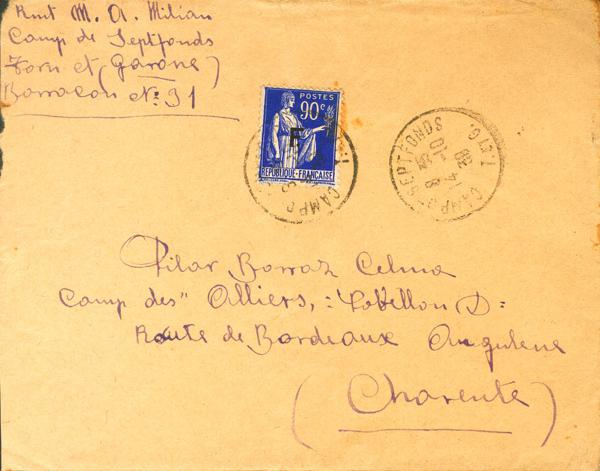 Rmt M. A. Milian
Camp de Septfonds
Tarn et (Garone)
Barracon Nº 31
POSTES
90c
F
REPUBLIQUE-FRANÇAISE
CAMP
CAMP SEPTFONDS
T.-&-G.
Pilar Borraz Celma
Camp des" Alliers, : Pabellon D:
Route de Bordeaux Angulene
(Charente)